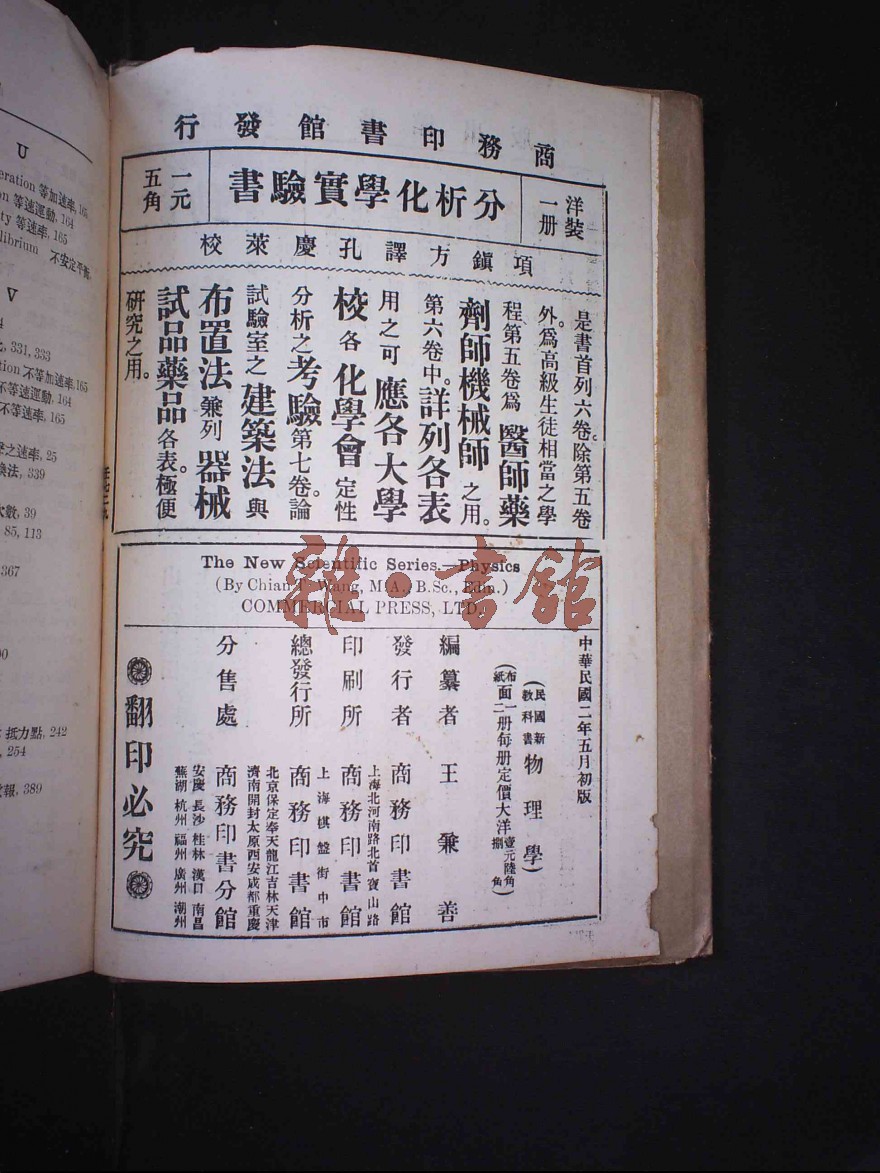 U
eration 等加速率, 165
on 等速運動, 164
ty 等速率, 165
ilibrium 不安定平衡,
V
4
331, 333
tion 不等加速率, 165
不等速運動, 164
不等速率, 165
之速率, 25
換法, 339
大數, 39
85, 113
367
00
抵力點, 242
254
電報, 389
商務印書館發行
洋裝一册
分析化學實驗書
一元五角
項鎭方譯孔慶萊校
是書首列六卷。除第五卷
外。爲高級生徒相當之學
程第五卷爲醫師藥
劑師機械師之用。
第六卷中。詳列各表
用之可應各大學
校各化學會定性
分析之考驗。第七卷論
試驗室之建築法與
布置法兼列器械
試品藥品各表。極便
研究之用。
The New Scientific Series.—Physics
(By Chian T. Wang, M.A., B.Sc., Edin.)
COMMERCIAL PRESS, LTD.
中華民國二年五月初版
(民國新教科書物理學)
(布紙面一二册每册定價大洋壹元陸角捌角)
編纂者 王兼善
發行者 商務印書館
上海北河南路北首寶山路
印刷所 商務印書館
上海棋盤街中市
總發行所 商務印書館
北京保定奉天龍江吉林天津
濟南開封太原西安成都重慶
分售處 商務印書分館
安慶長沙桂林漢口南昌
蕪湖杭州福州廣州潮州
翻印必究
雜·書館